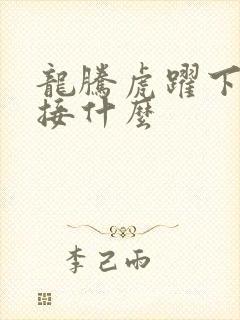 龍騰虎躍下
接什麼
李己雨